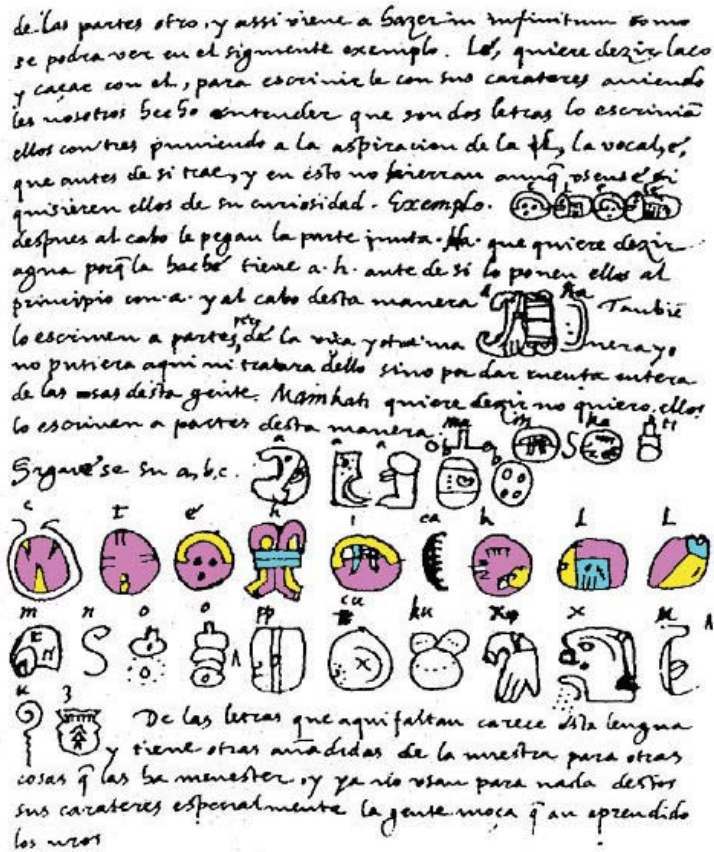 de las partes otro, y assi viene a hazer in infinitum como
se podra ver en el siguiente exemplo. Lé, quiere dezir laco
y caçar con el, para escrivirle con sus carateres aviendo
les nosotros hecho entender que son dos letras lo escrivian
ellos con tres puniendo a la aspiracion de la l, la vocal, é,
que antes de si trae, y en esto no hierran aunq̄ osense si
quisieren ellos de su curiosidad. Exemplo. e l e lé
despues al cabo le pegan la parte junta. Ha. que quiere dezir
agua porq̄ la haché tiene a. h. ante de si lo ponen ellos al
principio con. a. y al cabo desta manera a ha Tambiē
lo escriven a partes pero de la una y otra ma nera yo
no pusiera aqui ni tratara dello sino por dar cuenta entera
de las cosas desta gente. Mainkati quiere dezir no quiero. ellos
lo escriven a partes desta manera. ma i n ka ti
Siguese su a, b, c. a a a b b
c t é h i ca k l l
m n o o pp cu ku x x u
u z De las letras que aqui faltan carece esta lengua
y tiene otras añadidas de la nuestra para otras
cosas q̄ las ha menester, y ya no usan para nada destos
sus carateres especialmente la gente moça q̄ an aprendido
los nros